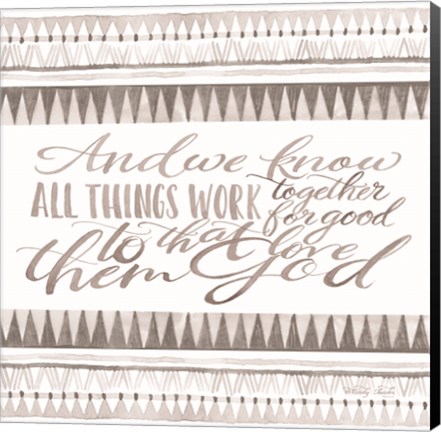 And we know
ALL THINGS WORK together
for good
to them that love
God